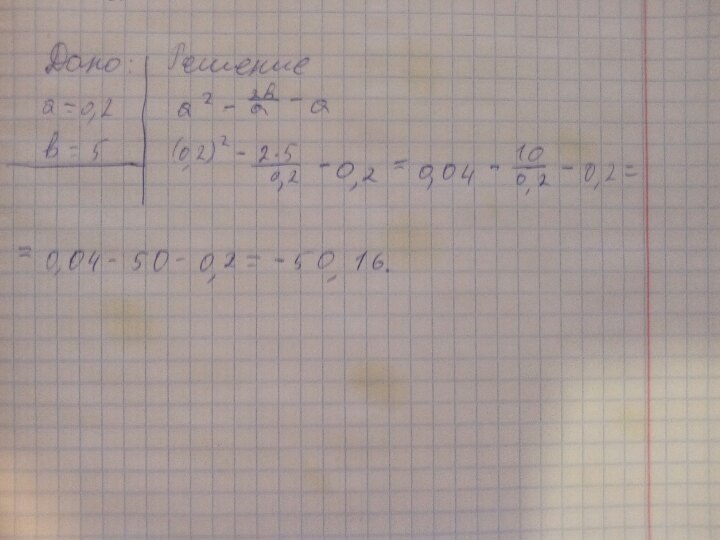 Дано: Решение
a = 0,2 a² - 2b/a - a
b = 5 (0,2)² - 2·5/0,2 - 0,2 = 0,04 - 10/0,2 - 0,2 =
= 0,04 - 50 - 0,2 = -50,16.